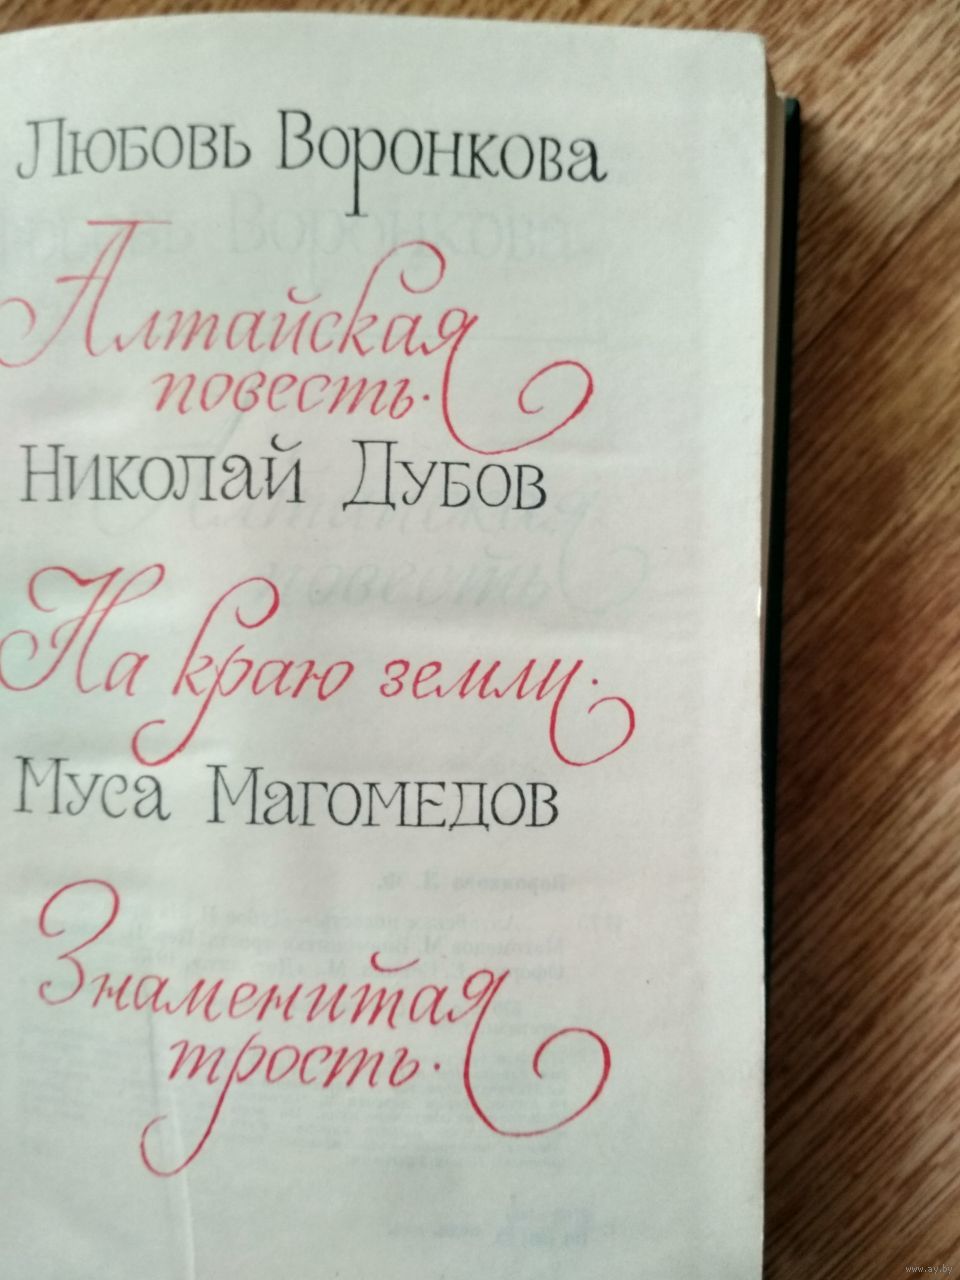 Любовь Воронкова
Алтайская
повесть.
Николай Дубов
На краю земли.
Муса Магомедов
Знаменитая
трость.
www.ay.by